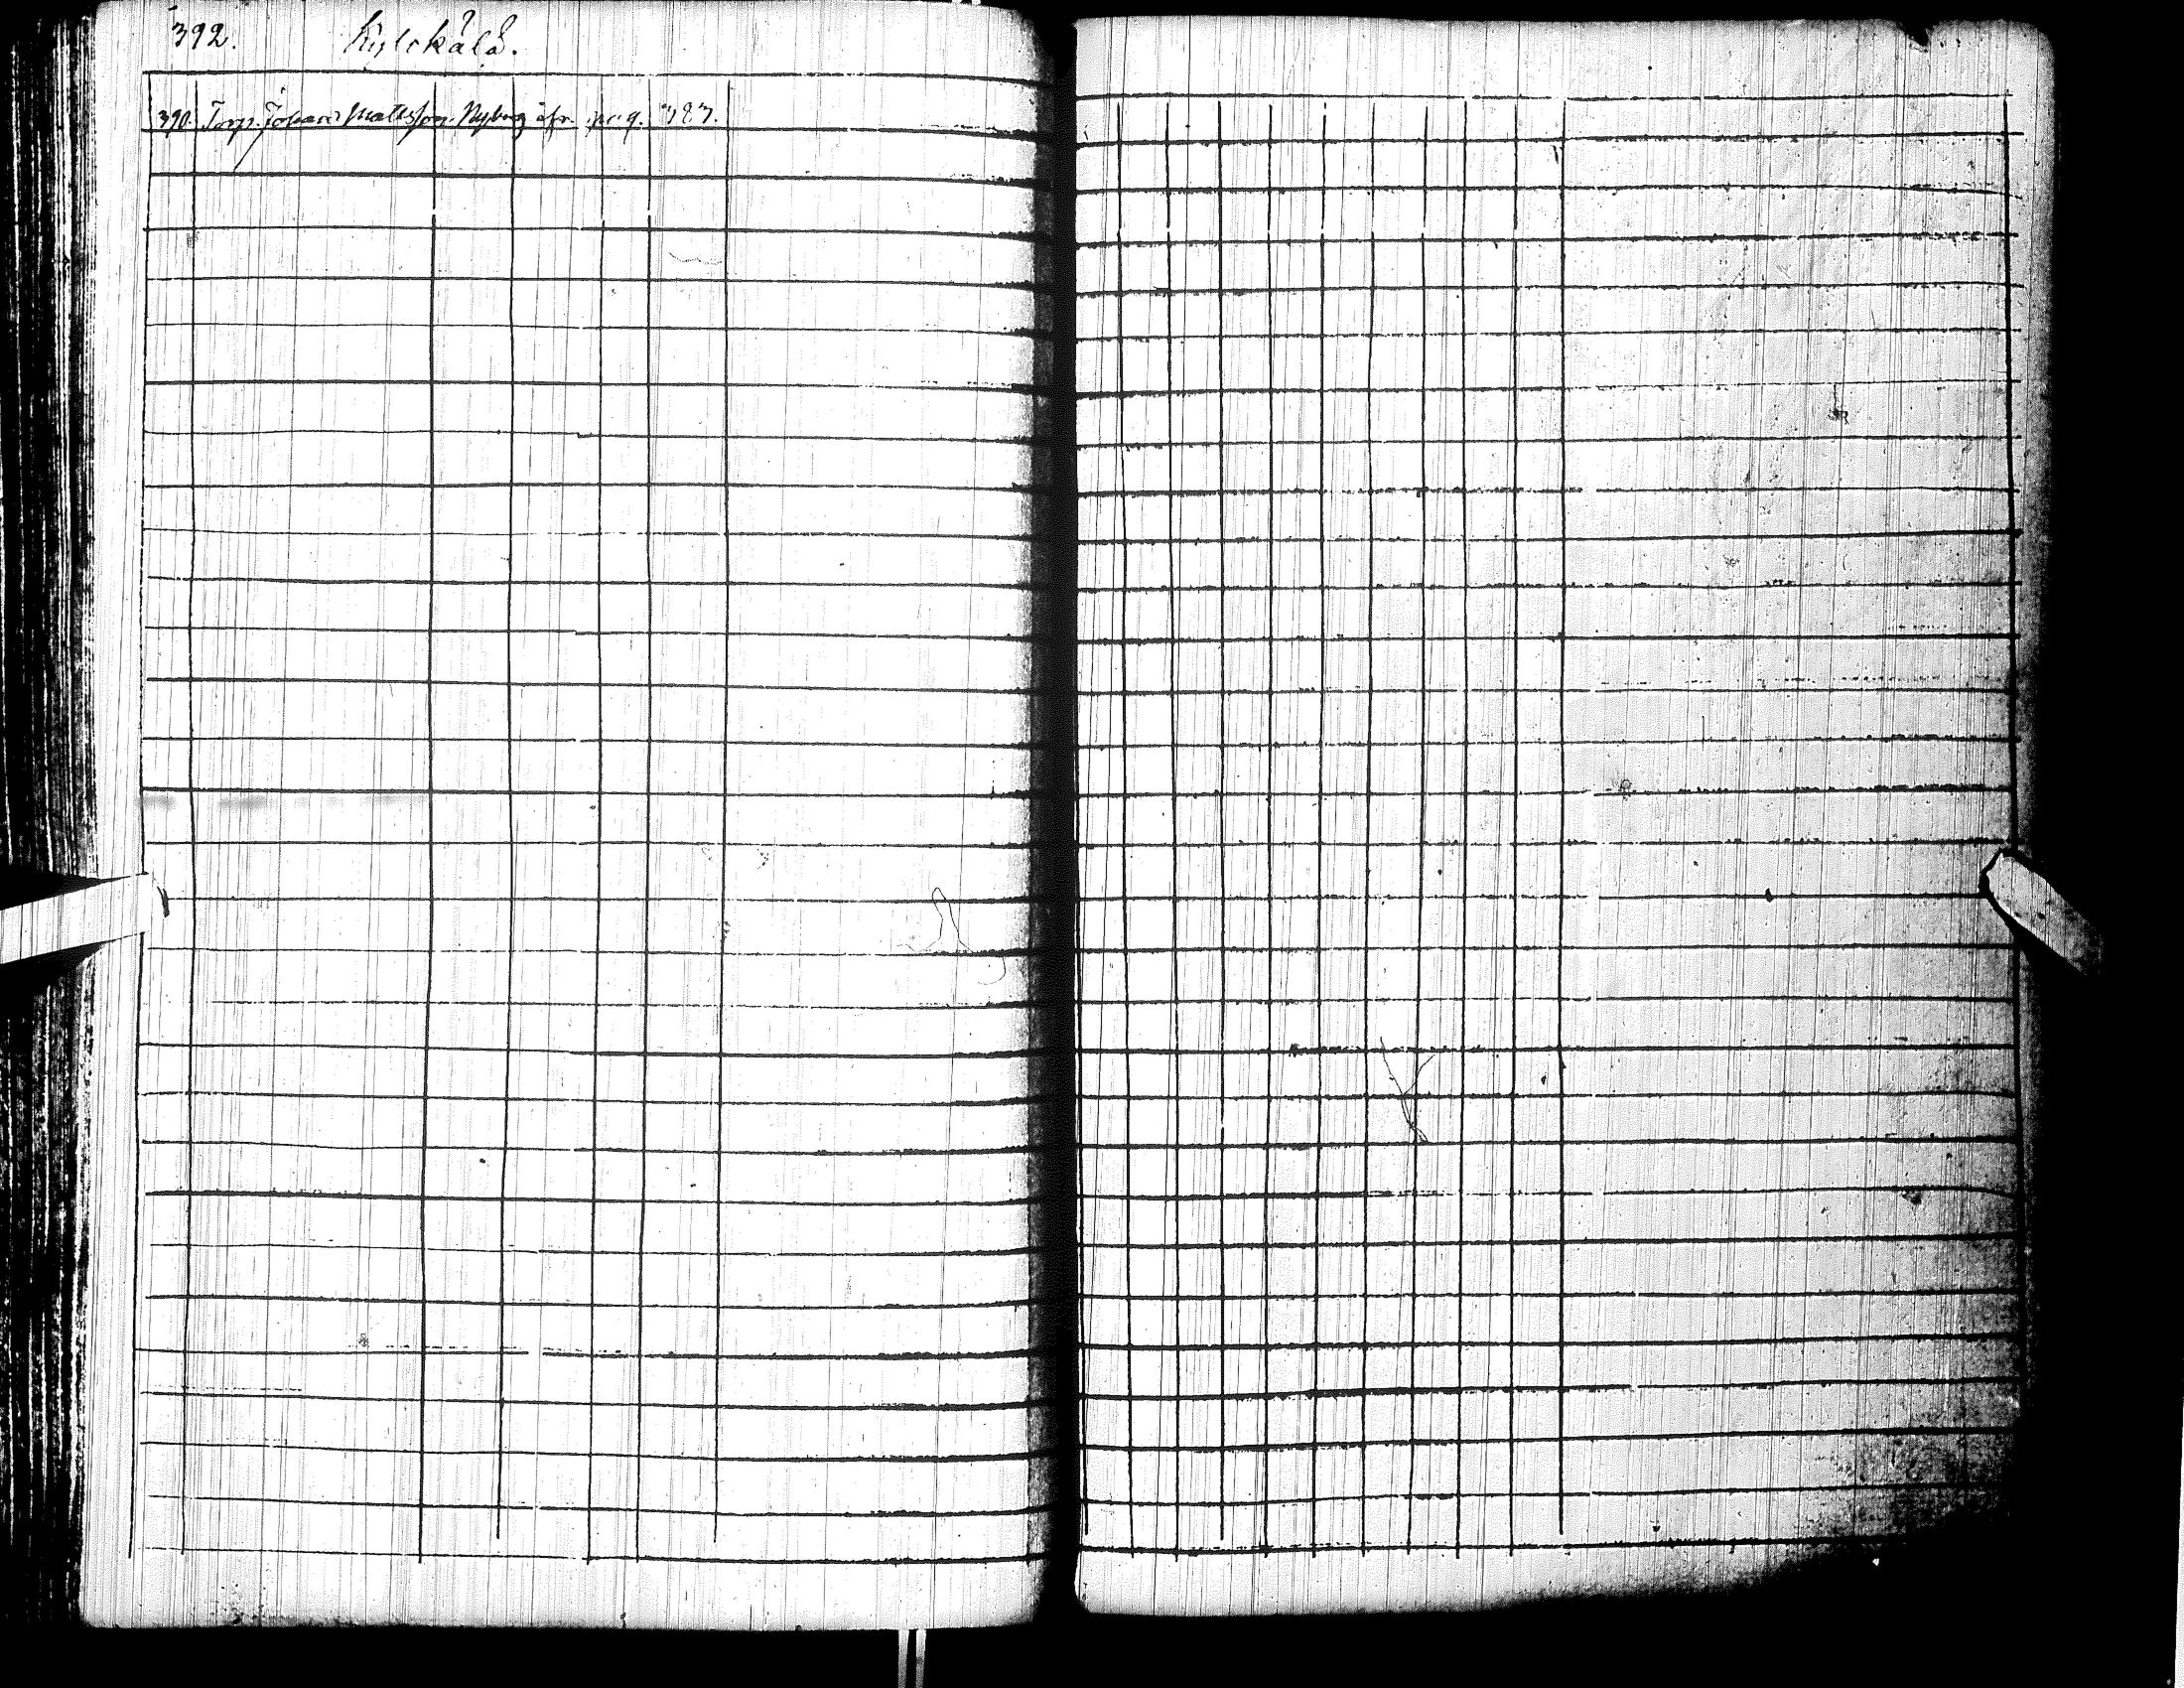 392. Kylskålå.
390. Torp. Johan Mattsson Nyberg öfr. pag. 323.